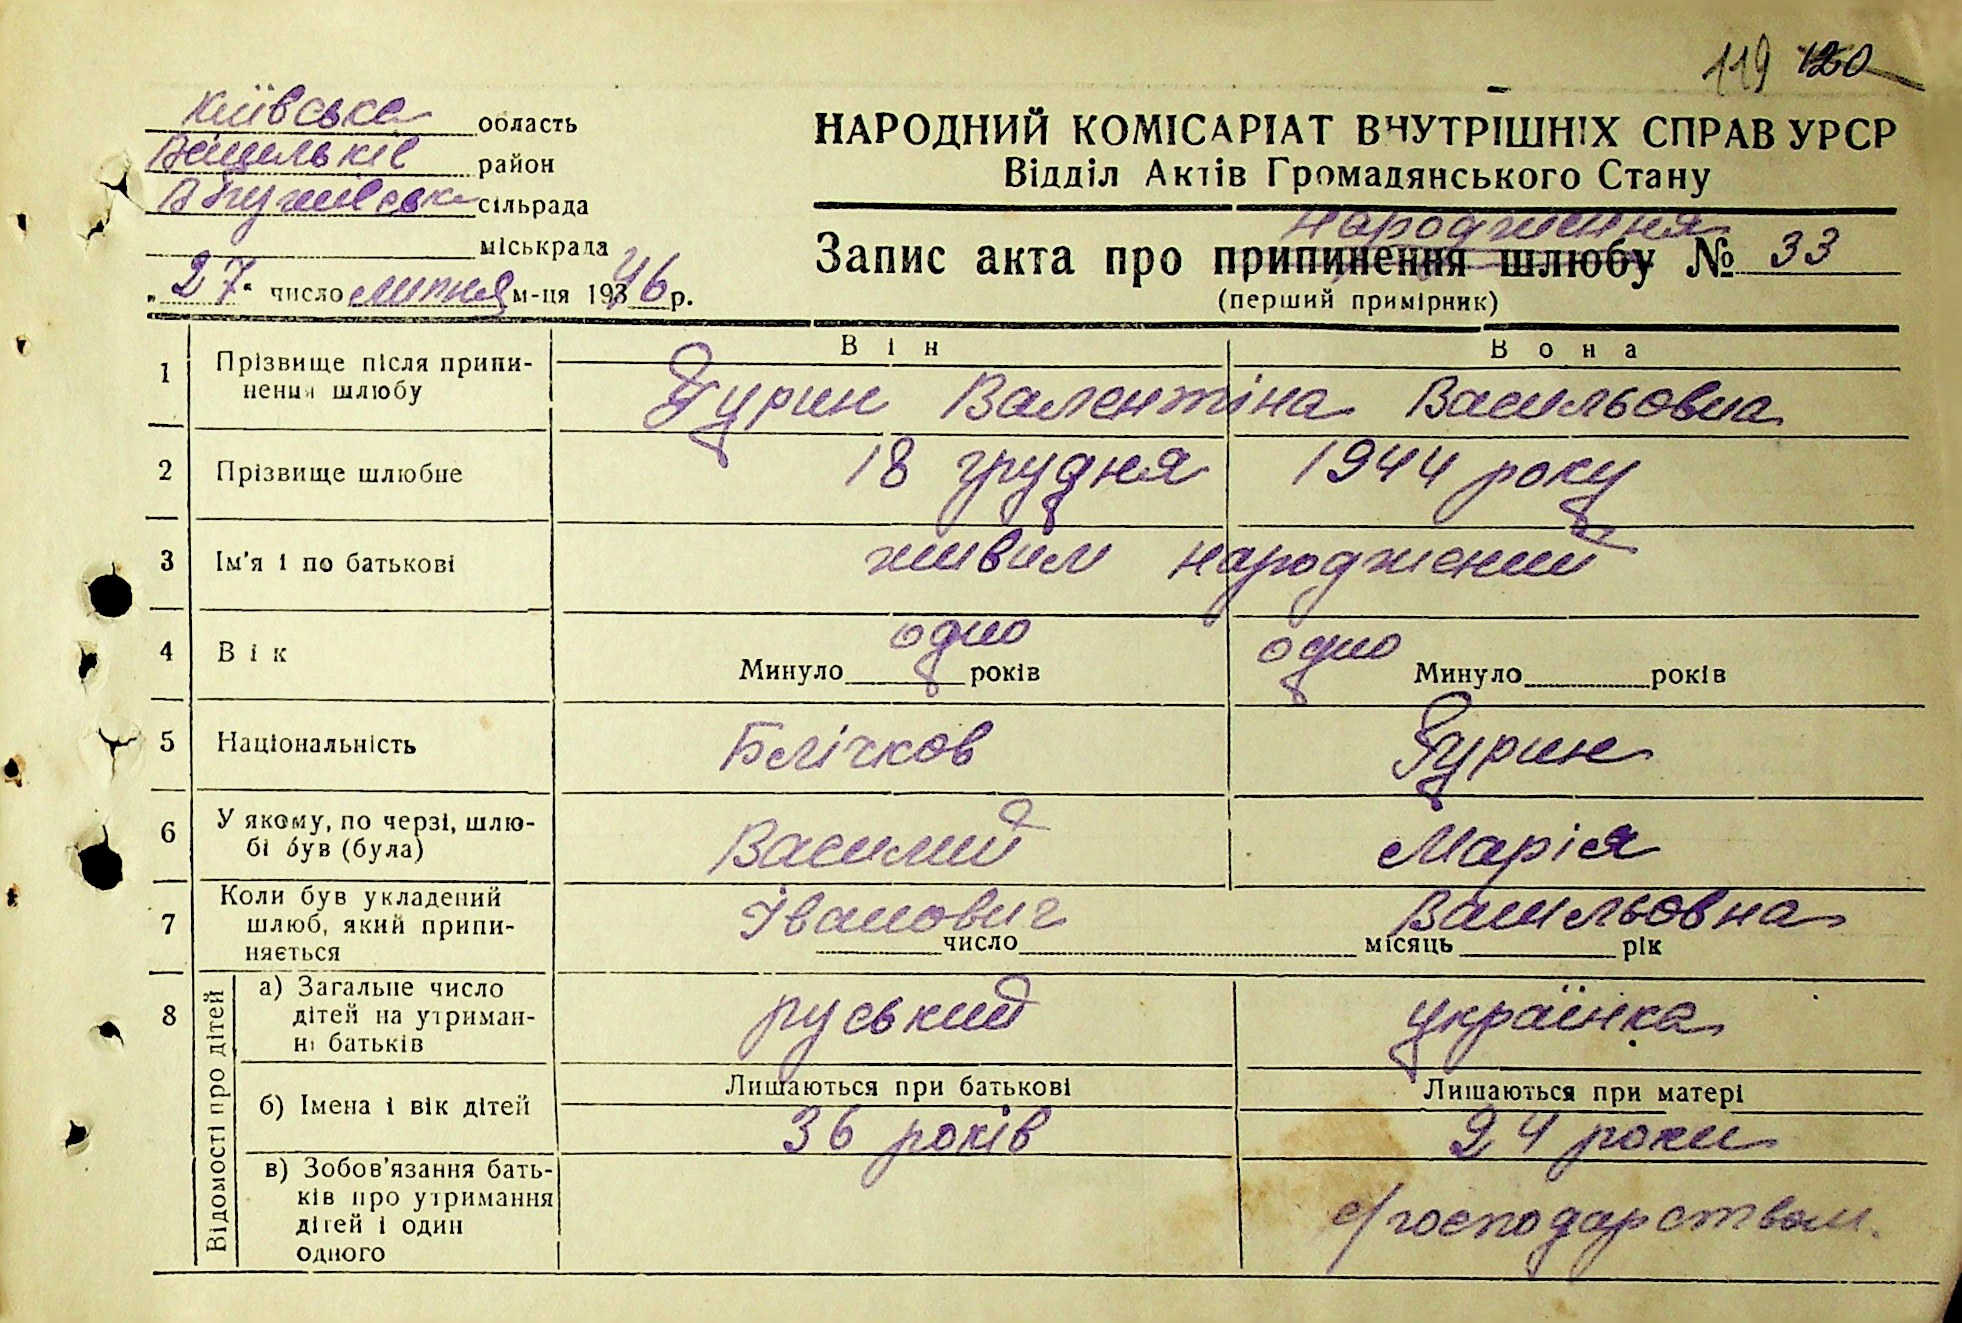 119 120
Київська область
район
сільрада
міськрада
„27“ число липня м-ця 1946 р.
НАРОДНИЙ КОМІСАРІАТ ВНУТРІШНІХ СПРАВ УРСР
Відділ Актів Громадянського Стану
народження
Запис акта про припинення шлюбу № 33
(перший примірник)
Він Вона
1 Прізвище після припинення шлюбу
Гурин Валентіна Васильовна
2 Прізвище шлюбне
18 грудня 1944 року
3 Ім'я і по батькові
живим народжений
4 Вік
одно одно
Минуло років Минуло років
5 Національність
Блічков Гурин
6 У якому, по черзі, шлю-
бі був (була)
Василий Марія
7 Коли був укладений
шлюб, який припи-
няється
Іванович Васильовна
число місяць рік
8 Відомості про дітей
а) Загальне число
дітей на утриман-
ні батьків
руський українка
Лишаються при батькові Лишаються при матері
б) Імена і вік дітей
36 років 24 роки
в) Зобов'язання бать-
ків про утримання
дітей і один
одного
с/господарством.